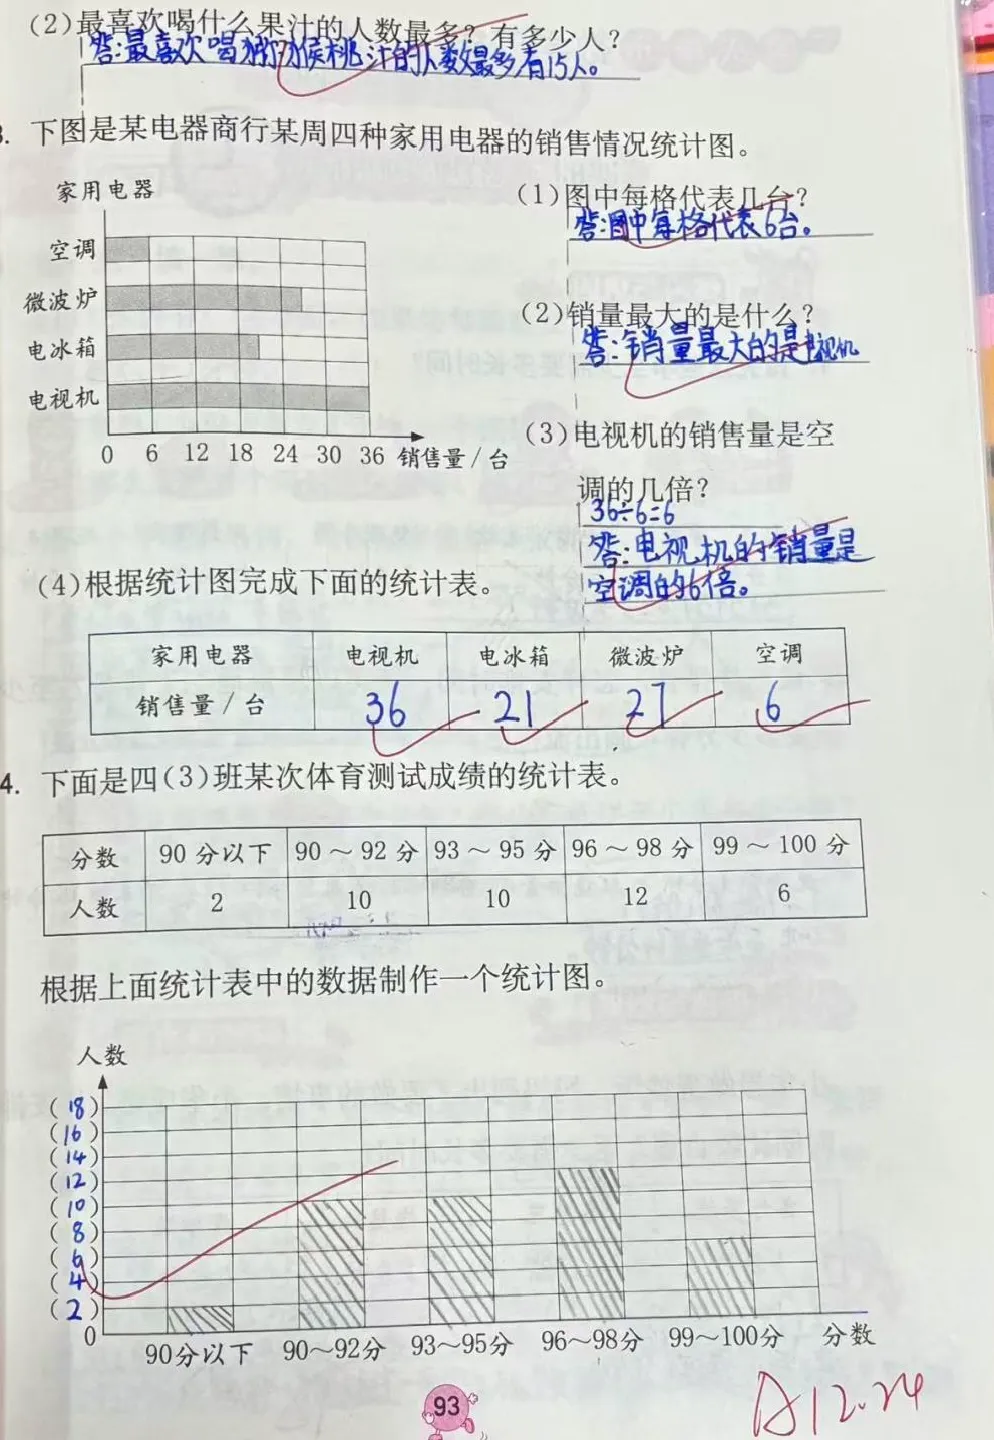 (2)最喜欢喝什么果汁的人数最多？有多少人？
答:最喜欢喝猕猴桃汁的人数最多有15人。
3. 下图是某电器商行某周四种家用电器的销售情况统计图。
家用电器
空调
微波炉
电冰箱
电视机
0 6 12 18 24 30 36 销售量/台
(1)图中每格代表几台？
答:图中每格代表6台。
(2)销量最大的是什么？
答:销量最大的是电视机
(3)电视机的销售量是空
调的几倍？
36÷6=6
答:电视机的销量是
空调的6倍。
(4)根据统计图完成下面的统计表。
家用电器 电视机 电冰箱 微波炉 空调
销售量/台 36 21 27 6
4. 下面是四(3)班某次体育测试成绩的统计表。
分数 90分以下 90～92分 93～95分 96～98分 99～100分
人数 2 10 10 12 6
根据上面统计表中的数据制作一个统计图。
人数
(18)
(16)
(14)
(12)
(10)
(8)
(6)
(4)
(2)
0
90分以下 90～92分 93～95分 96～98分 99～100分 分数
93
A12.24